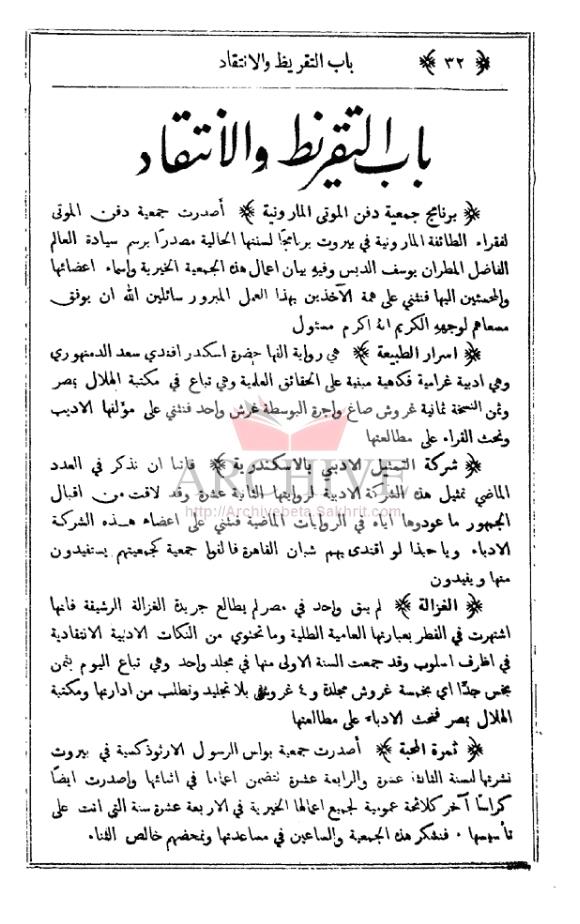 ﴿ ٣٢ ﴾ باب التقريظ والانتقاد
باب التقريظ والانتقاد
﴿ برنامج جمعية دفن الموتى المارونية ﴾ أصدرت جمعية دفن الموتى
لفقراء الطائفة المارونية في بيروت برنامجًا لسنتها الحالية مصدرًا برسم سيادة العالم
الفاضل المطران يوسف الدبس وفيه بيان اعمال هذه الجمعية الخيرية واسماء اعضائها
والمحسنين اليها فنثني على همة الآخذين بهذا العمل المبرور سائلين الله ان يوفق
مسعاهم لوجهه الكريم انه اكرم مسئول
﴿ اسرار الطبيعة ﴾ هي رواية الفها حضرة اسكندر افندي سعد الدمنهوري
وهي ادبية غرامية فكاهية مبنية على الحقائق العلمية وهي تباع في مكتبة الهلال بمصر
وثمن النسخة ثمانية غروش صاغ واجرة البوسطة غرش واحد فنثني على مؤلفها الاديب
ونحث القراء على مطالعتها
﴿ شركة التمثيل الادبي بالاسكندرية ﴾ فاتنا ان نذكر في العدد
الماضي تمثيل هذه الشركة الادبية لروايتها الثانية عشرة وقد لاقت من اقبال
الجمهور ما عودوها اياه في الروايات الماضية فنثني على اعضاء هذه الشركة
الادباء ويا حبذا لو اقتدى بهم شبان القاهرة فالفوا جمعية كجمعيتهم يستفيدون
منها ويفيدون
﴿ الغزالة ﴾ لم يبق واحد في مصر لم يطالع جريدة الغزالة الرشيقة فانها
اشتهرت في القطر بعبارتها العامية الطلية وما تحتوي من النكات الادبية الانتقادية
في اظرف اسلوب وقد جمعت السنة الاولى منها في مجلد واحد وهي تباع اليوم بثمن
بخس جدًا اي بخمسة غروش مجلدة و٤ غروش بلا تجليد وتطلب من ادارتها ومكتبة
الهلال بمصر فنحث الادباء على مطالعتها
﴿ ثمرة المحبة ﴾ أصدرت جمعية بولس الرسول الارثوذكسية في بيروت
نشرتها لسنة الثالثة عشرة والرابعة عشرة تتضمن اعمالها في اثنائها واصدرت ايضًا
كراسًا آخر كلائحة عمومية لجميع اعمالها الخيرية في الاربعة عشرة سنة التي اتت على
تأسيسها ٠ فنشكر هذه الجمعية والساعين في مساعدتها ونمحضهم خالص الثناء
ARCHIVE
http://Archivebeta.Sakhrit.com